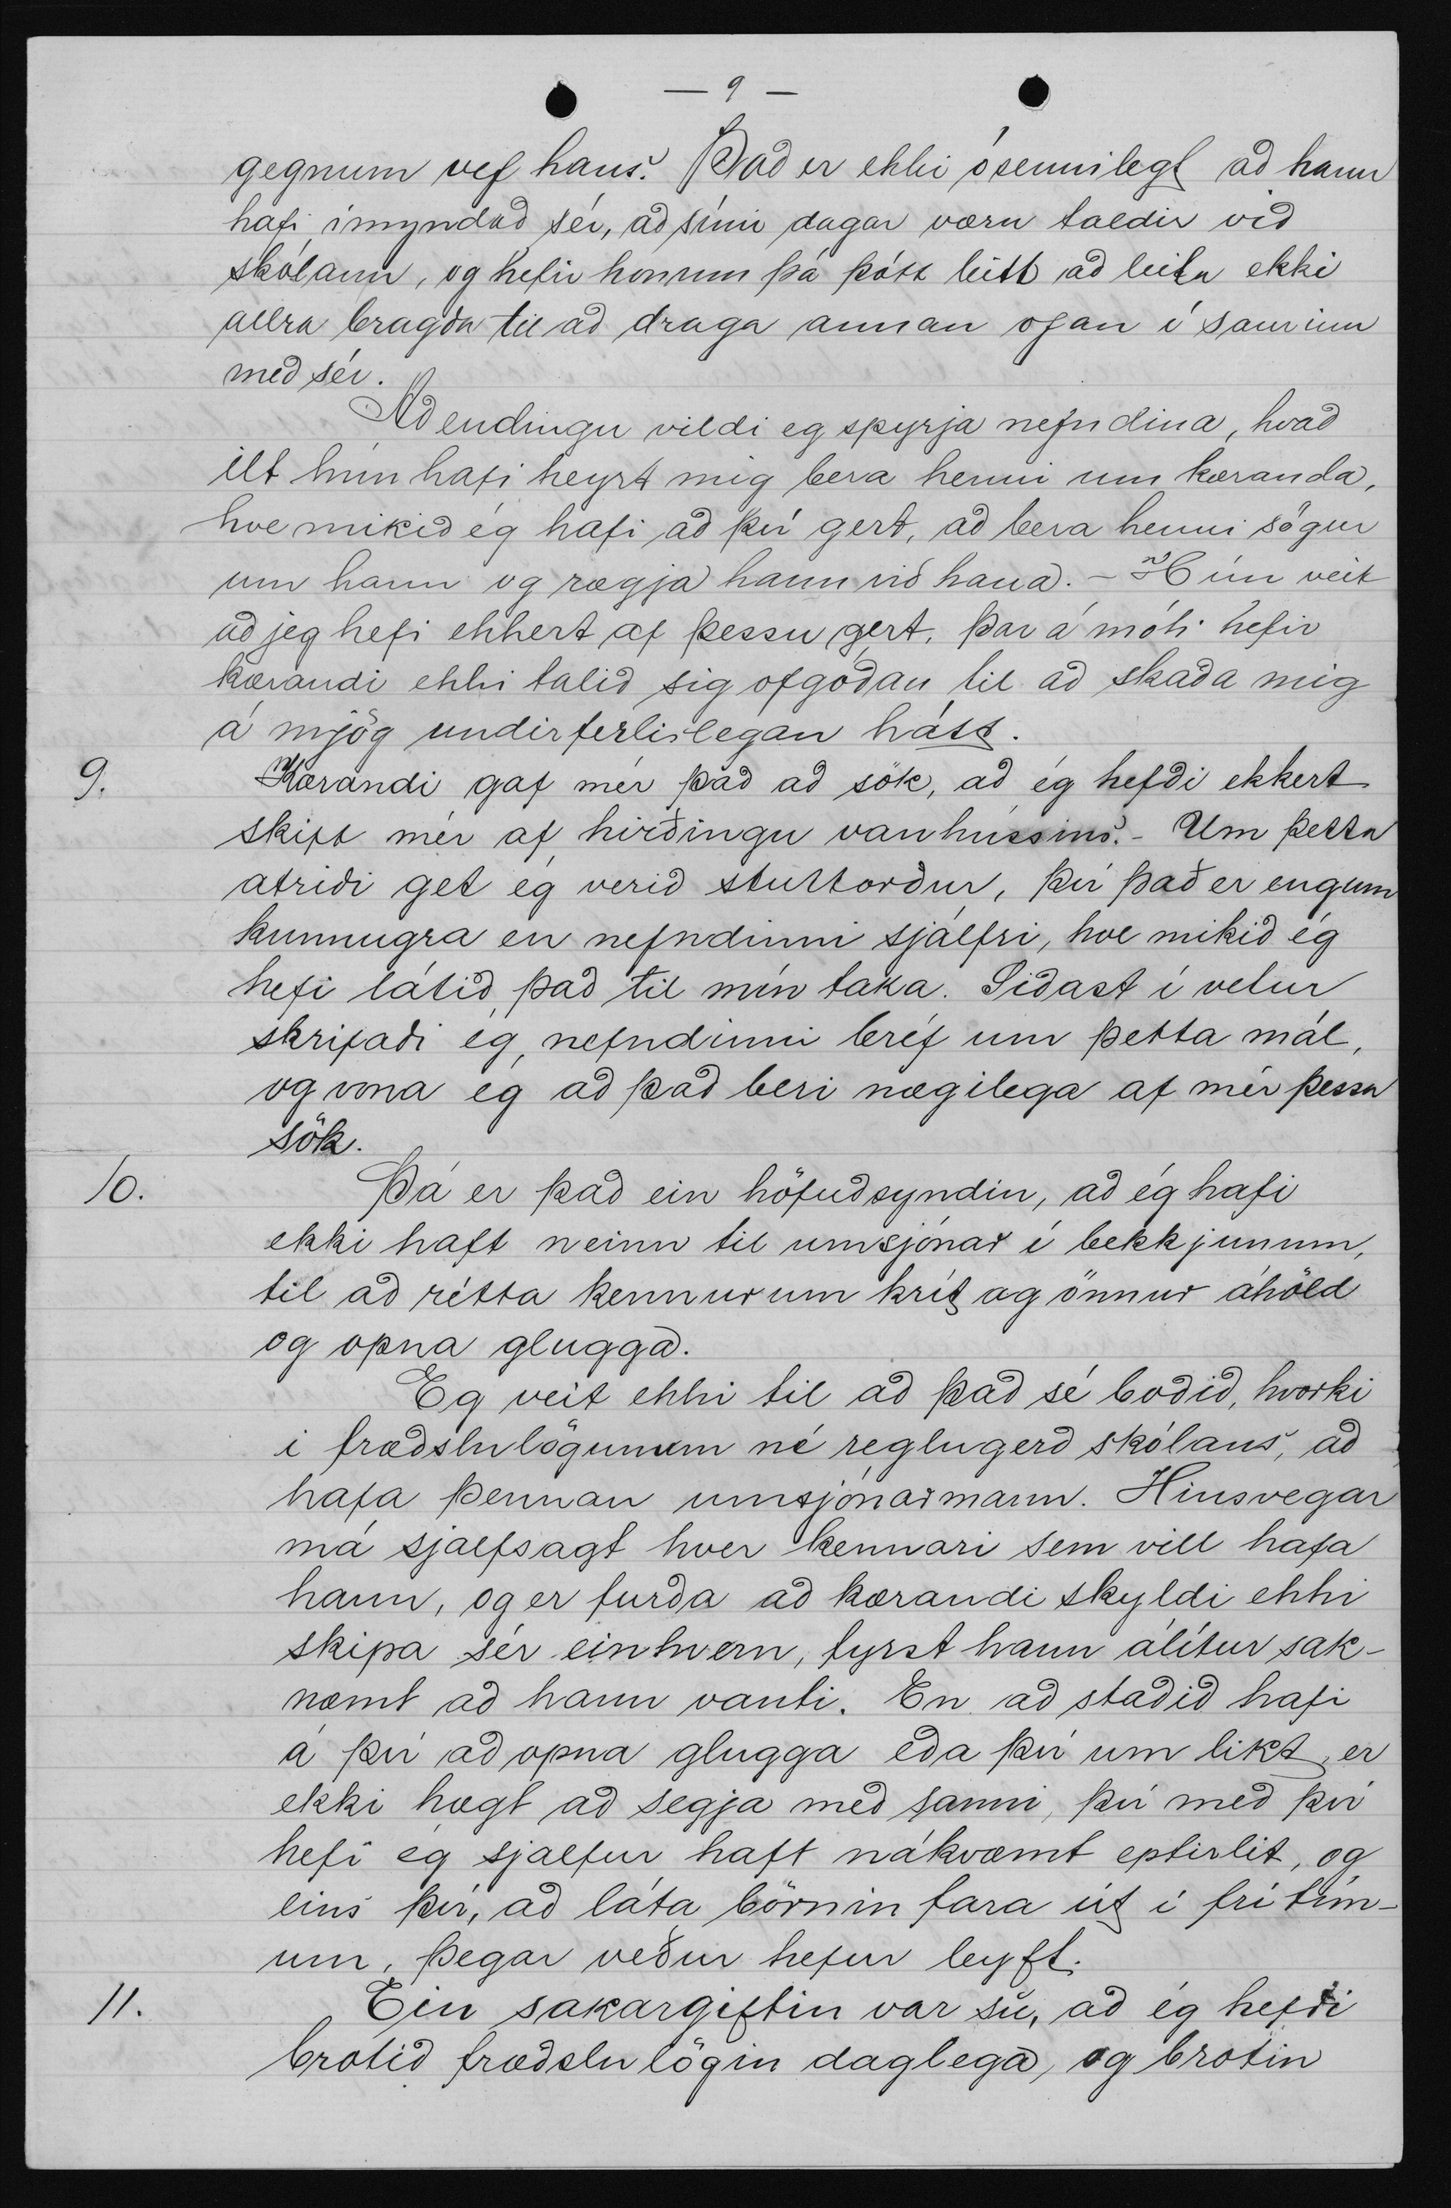 — 9 —
gegnum vef hans. Það er ekki ósennilegt að hann
hafi ímyndað sér, að sínir dagar væru taldir við
skólann, og hefir honum þá þótt leitt að leita ekki
allra bragða til að draga annan ofan í saurinn
með sér.
Að endingu vildi eg spyrja nefndina, hvað
ilt hún hafi heyrt mig bera henni um kæranda,
hve mikið ég hafi að því gert, að bera henni sögur
um hann og rægja hann við hana. – Hún veit
að jeg hefi ekkert af þessu gert, þar á móti hefir
kærandi ekki talið sig ofgóðan til að skaða mig
á mjög undirferlislegan hátt.
9. Kærandi gaf mér það að sök, að ég hefði ekkert
skipt mér af hirðingu vanhússins. – Um þetta
atriði get ég verið stuttorður, því það er engum
kunnugra en nefndinni sjálfri, hve mikið ég
hefi látið það til mín taka. Síðast í vetur
skrifaði ég nefndinni bréf um þetta mál,
og vona ég að það beri nægilega af mér þessa
sök.
10. Þá er það ein höfuðsyndin, að ég hafi
ekki haft neinn til umsjónar í bekkjunum,
til að rétta kennurum krít og önnur áhöld
og opna glugga.
Eg veit ekki til að það sé boðið, hvorki
i fræðslulögunum né reglugerð skólans, að
hafa þennan umsjónarmann. Hinsvegar
má sjálfsagt hver kennari sem vill hafa
hann, og er furða að kærandi skyldi ekki
skipa sér einhvern, fyrst hann álítur sak-
næmt að hann vanti. En að staðið hafi
á því að opna glugga eða því um líkt, er
ekki hægt að segja með sanni, því með því
hefi ég sjálfur haft nákvæmt eptirlit, og
eins því, að láta börnin fara út í frítím-
um, þegar veður hefur leyft.
11. Ein sakargiftin var sú, að ég hefði
brotið fræðslulögin daglega, og brotin